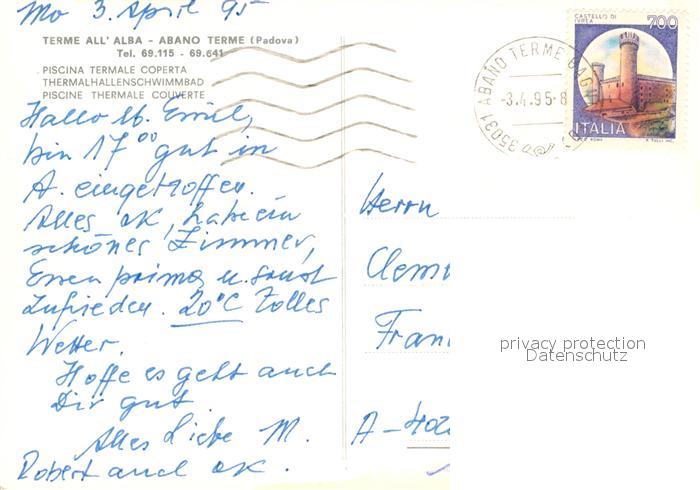 Mo 3. April 95
TERME ALL' ALBA - ABANO TERME (Padova)
Tel. 69.115 - 69.641
PISCINA TERMALE COPERTA
THERMALHALLENSCHWIMMBAD
PISCINE THERMALE COUVERTE
Hallo lb.
bin 17 00 gut in
A. eingetroffen.
Alles ok, habe ein
schönes Zimmer,
Essen prima u. sonst
Zufrieden. 20°C Tolles
Wetter.
Hoffe es geht auch
Dir gut.
Alles Liebe M.
Robert auch ok.
CASTELLO DI
IVREA
700
ITALIA
35031 ABANO TERME
-3.4.95-8
Herrn
Clem
Fran
privacy protection
Datenschutz
A-402